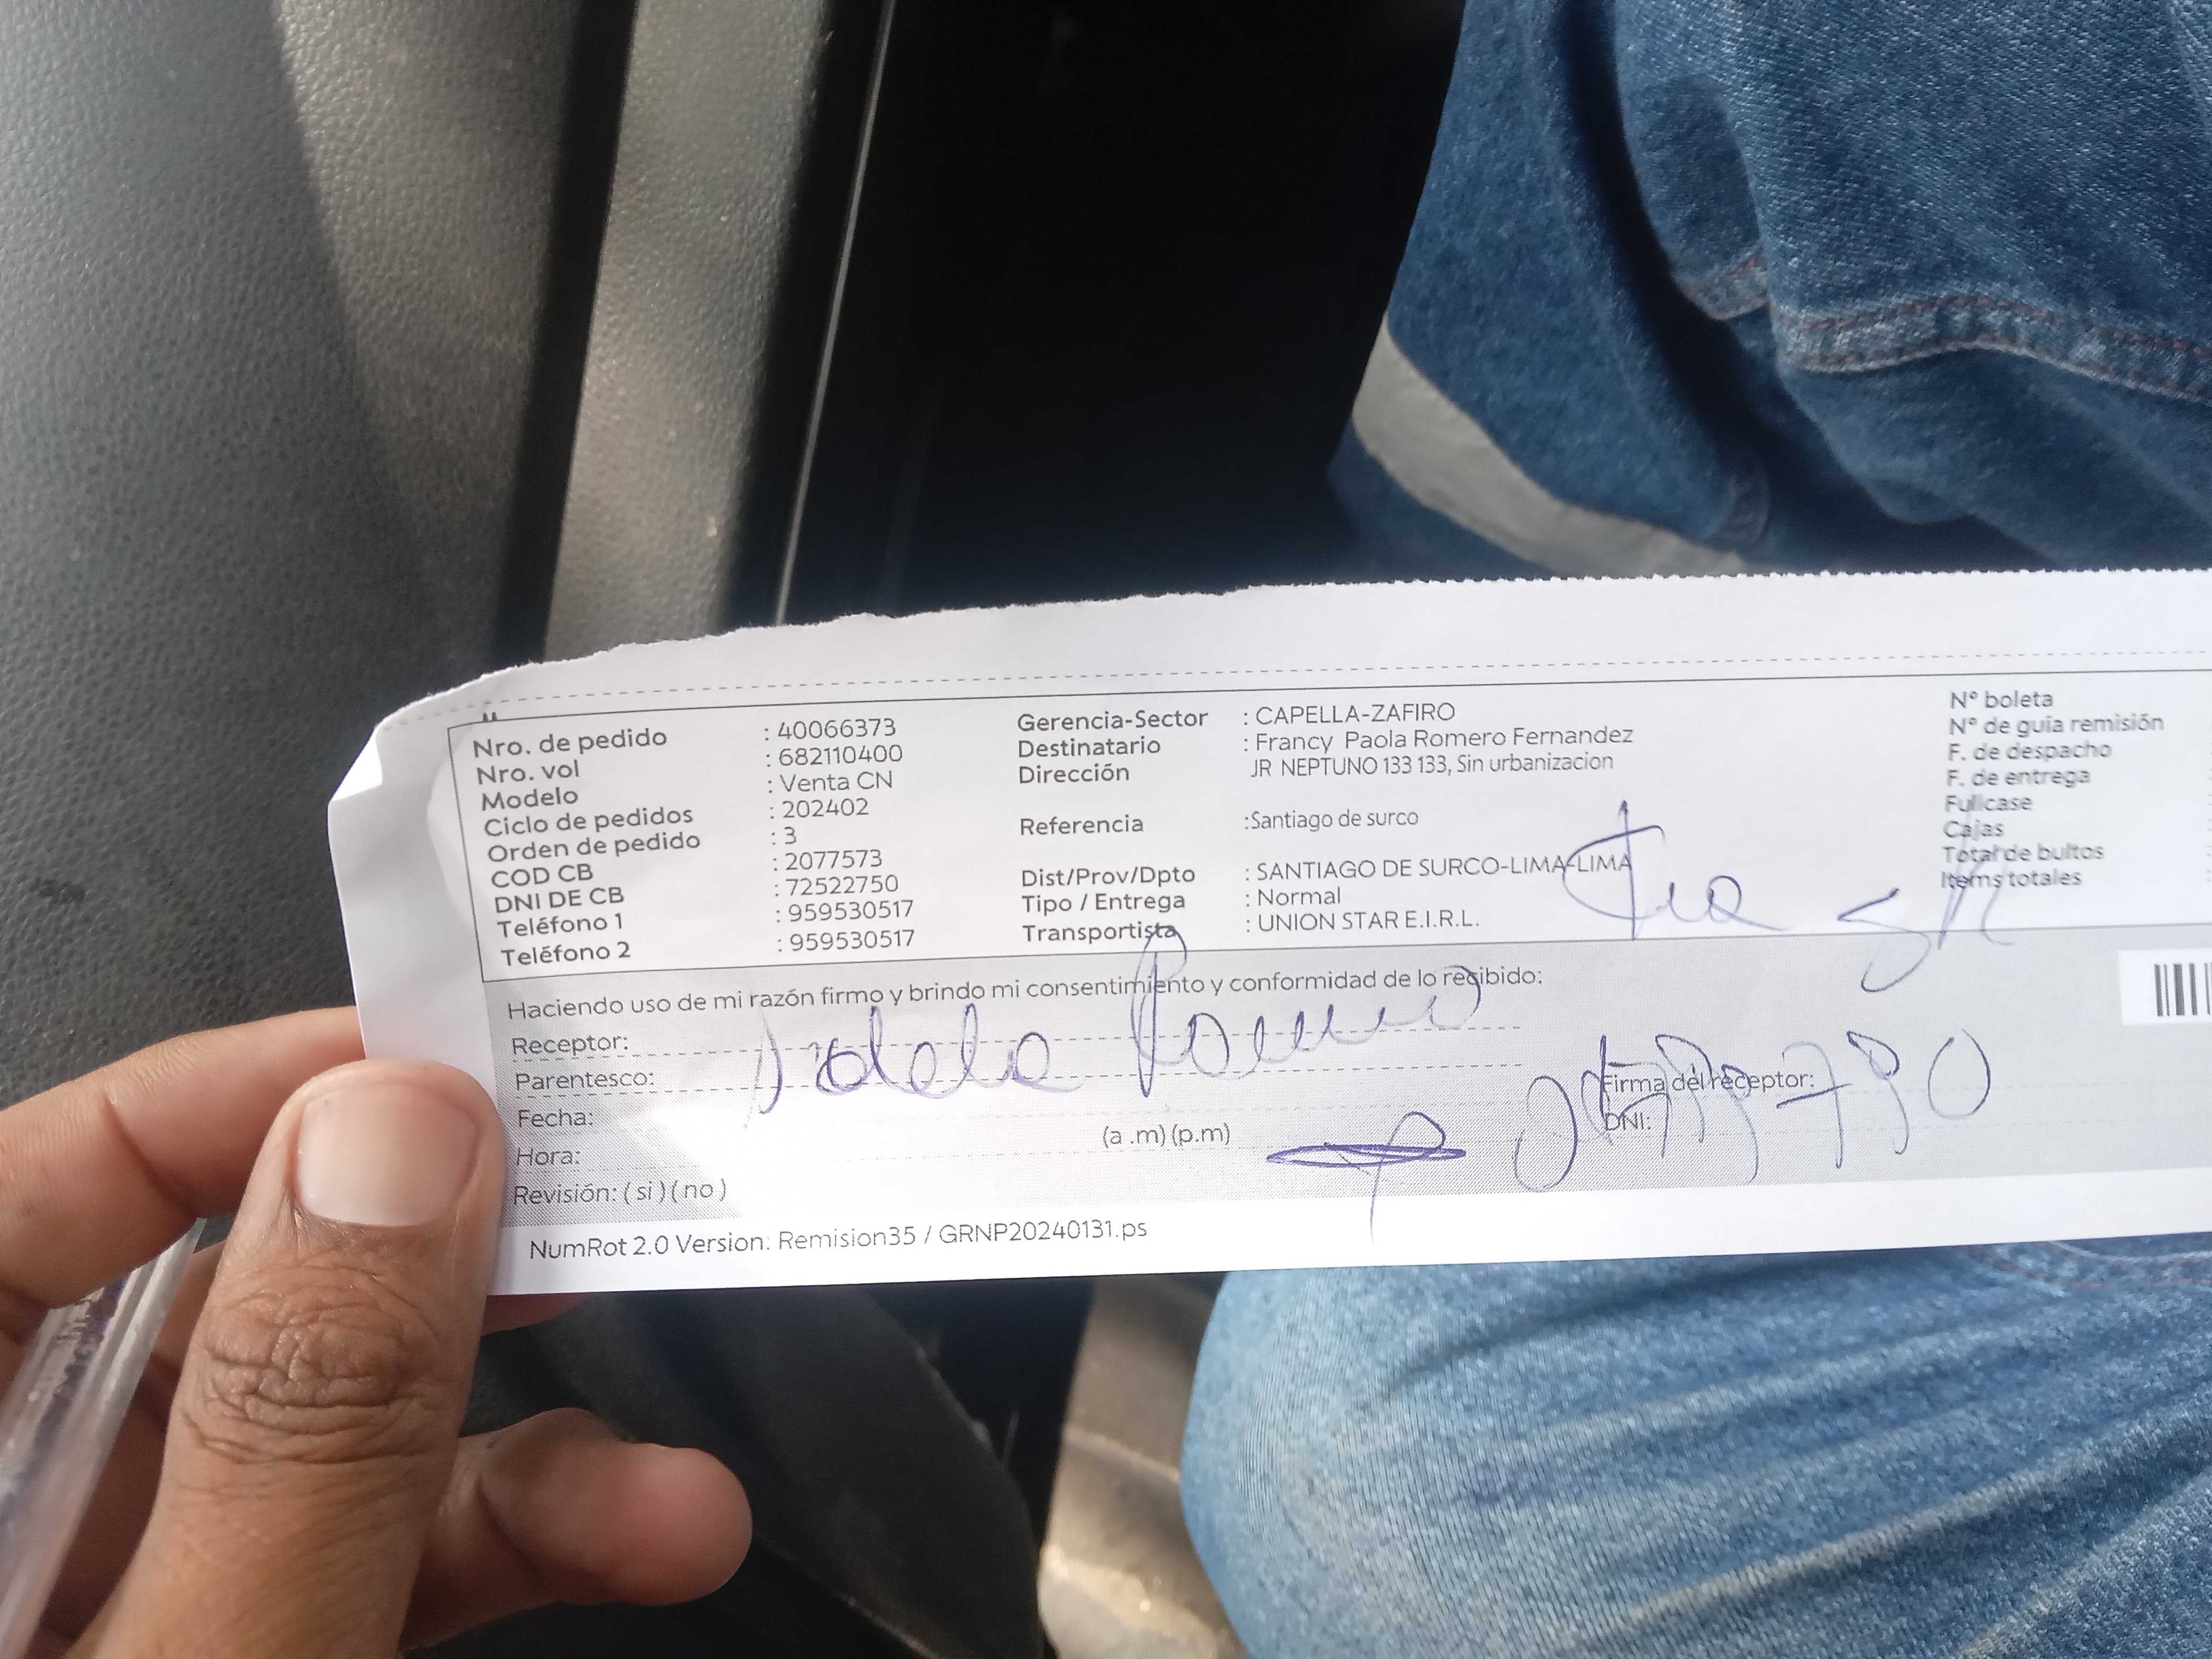 Nro. de pedido : 40066373
Nro. vol : 682110400
Modelo : Venta CN
Ciclo de pedidos : 202402
Orden de pedido : 3
COD CB : 2077573
DNI DE CB : 72522750
Teléfono 1 : 959530517
Teléfono 2 : 959530517
Gerencia-Sector : CAPELLA-ZAFIRO
Destinatario : Francy Paola Romero Fernandez
Dirección JR NEPTUNO 133 133, Sin urbanizacion
Referencia :Santiago de surco
Dist/Prov/Dpto : SANTIAGO DE SURCO-LIMA-LIMA
Tipo / Entrega : Normal
Transportista : UNION STAR E.I.R.L.
N° boleta
N° de guía remisión
F. de despacho
F. de entrega
Fullcase
Cajas
Total de bultos
Items totales
Haciendo uso de mi razón firmo y brindo mi consentimiento y conformidad de lo recibido:
Receptor:
Parentesco:
Fecha:
Hora: (a .m) (p.m)
Revisión: ( si ) ( no )
Firma del receptor:
DNI:
NumRot 2.0 Version: Remision35 / GRNP20240131.ps